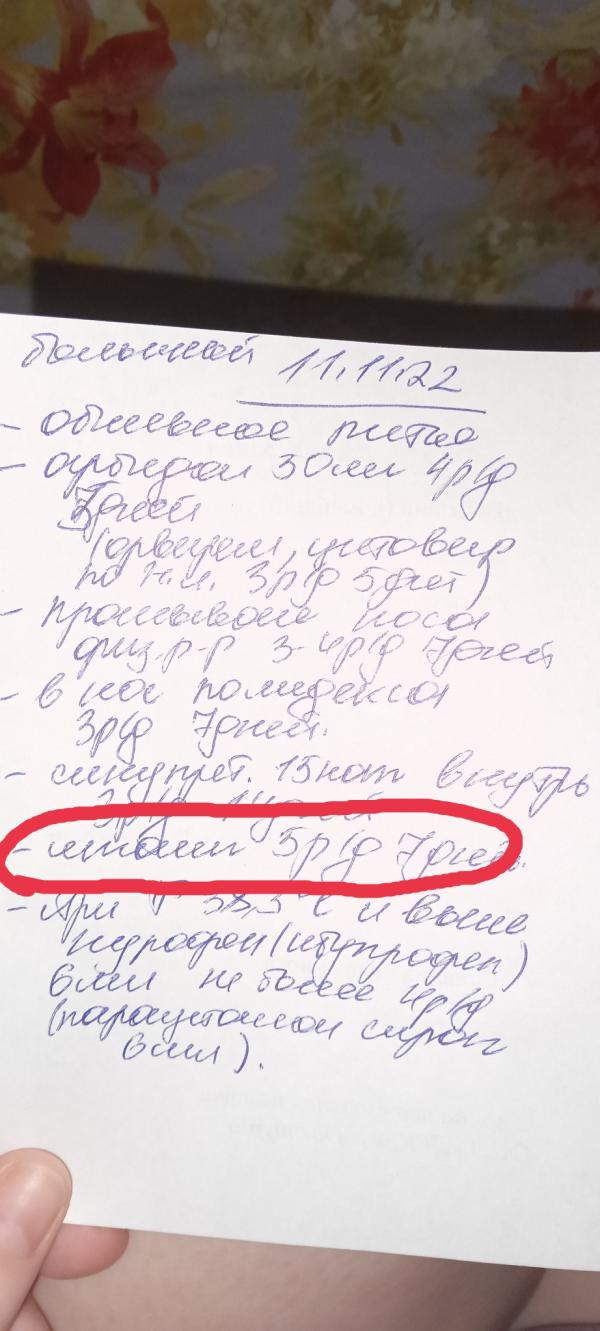 больной 11.11.22
- обильное питье
- 30мл 4р/д
7дней
(орвирем, цитовир
по н.м. 3р/д 5дней)
- промывание носа
физ.р-р 3-4р/д 7дней
- в нос полидекса
3р/д 7дней.
- синупрет. 15кап внутрь
3р/д 14дней
- 5р/д 7дней.
- при t° 38,5°C и выше
нурофен (ибупрофен)
6мл не более 4р/д
(парацетамол сироп
6мл).